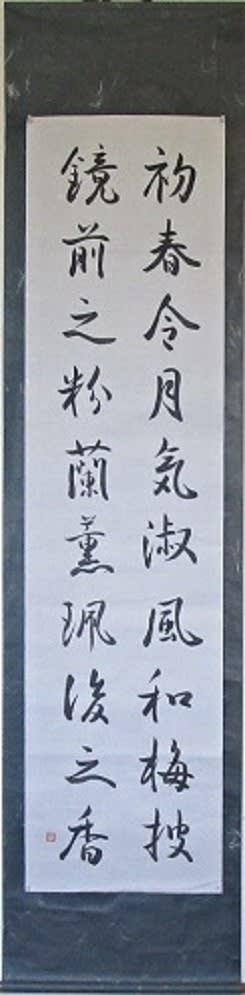 初春令月気淑風和梅披
鏡前之粉蘭薫珮後之香